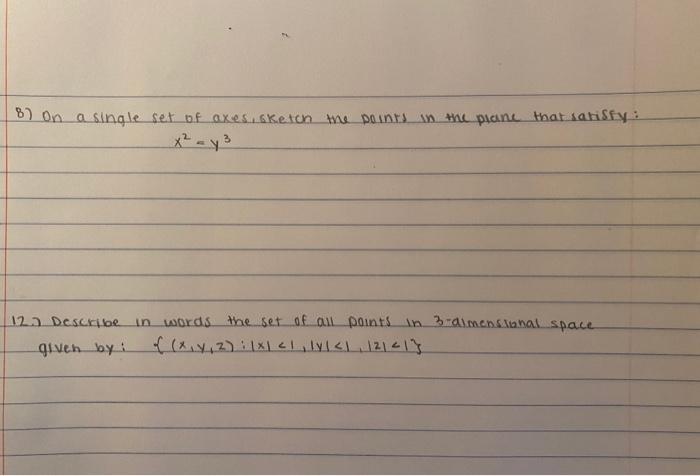 8) On a single set of axes, sketch the points in the plane that satisfy:
x² = y³
12.) Describe in words the set of all points in 3-dimensional space
given by: { (x, y, z) : |x| < 1, |y| < 1, |z| < 1 }